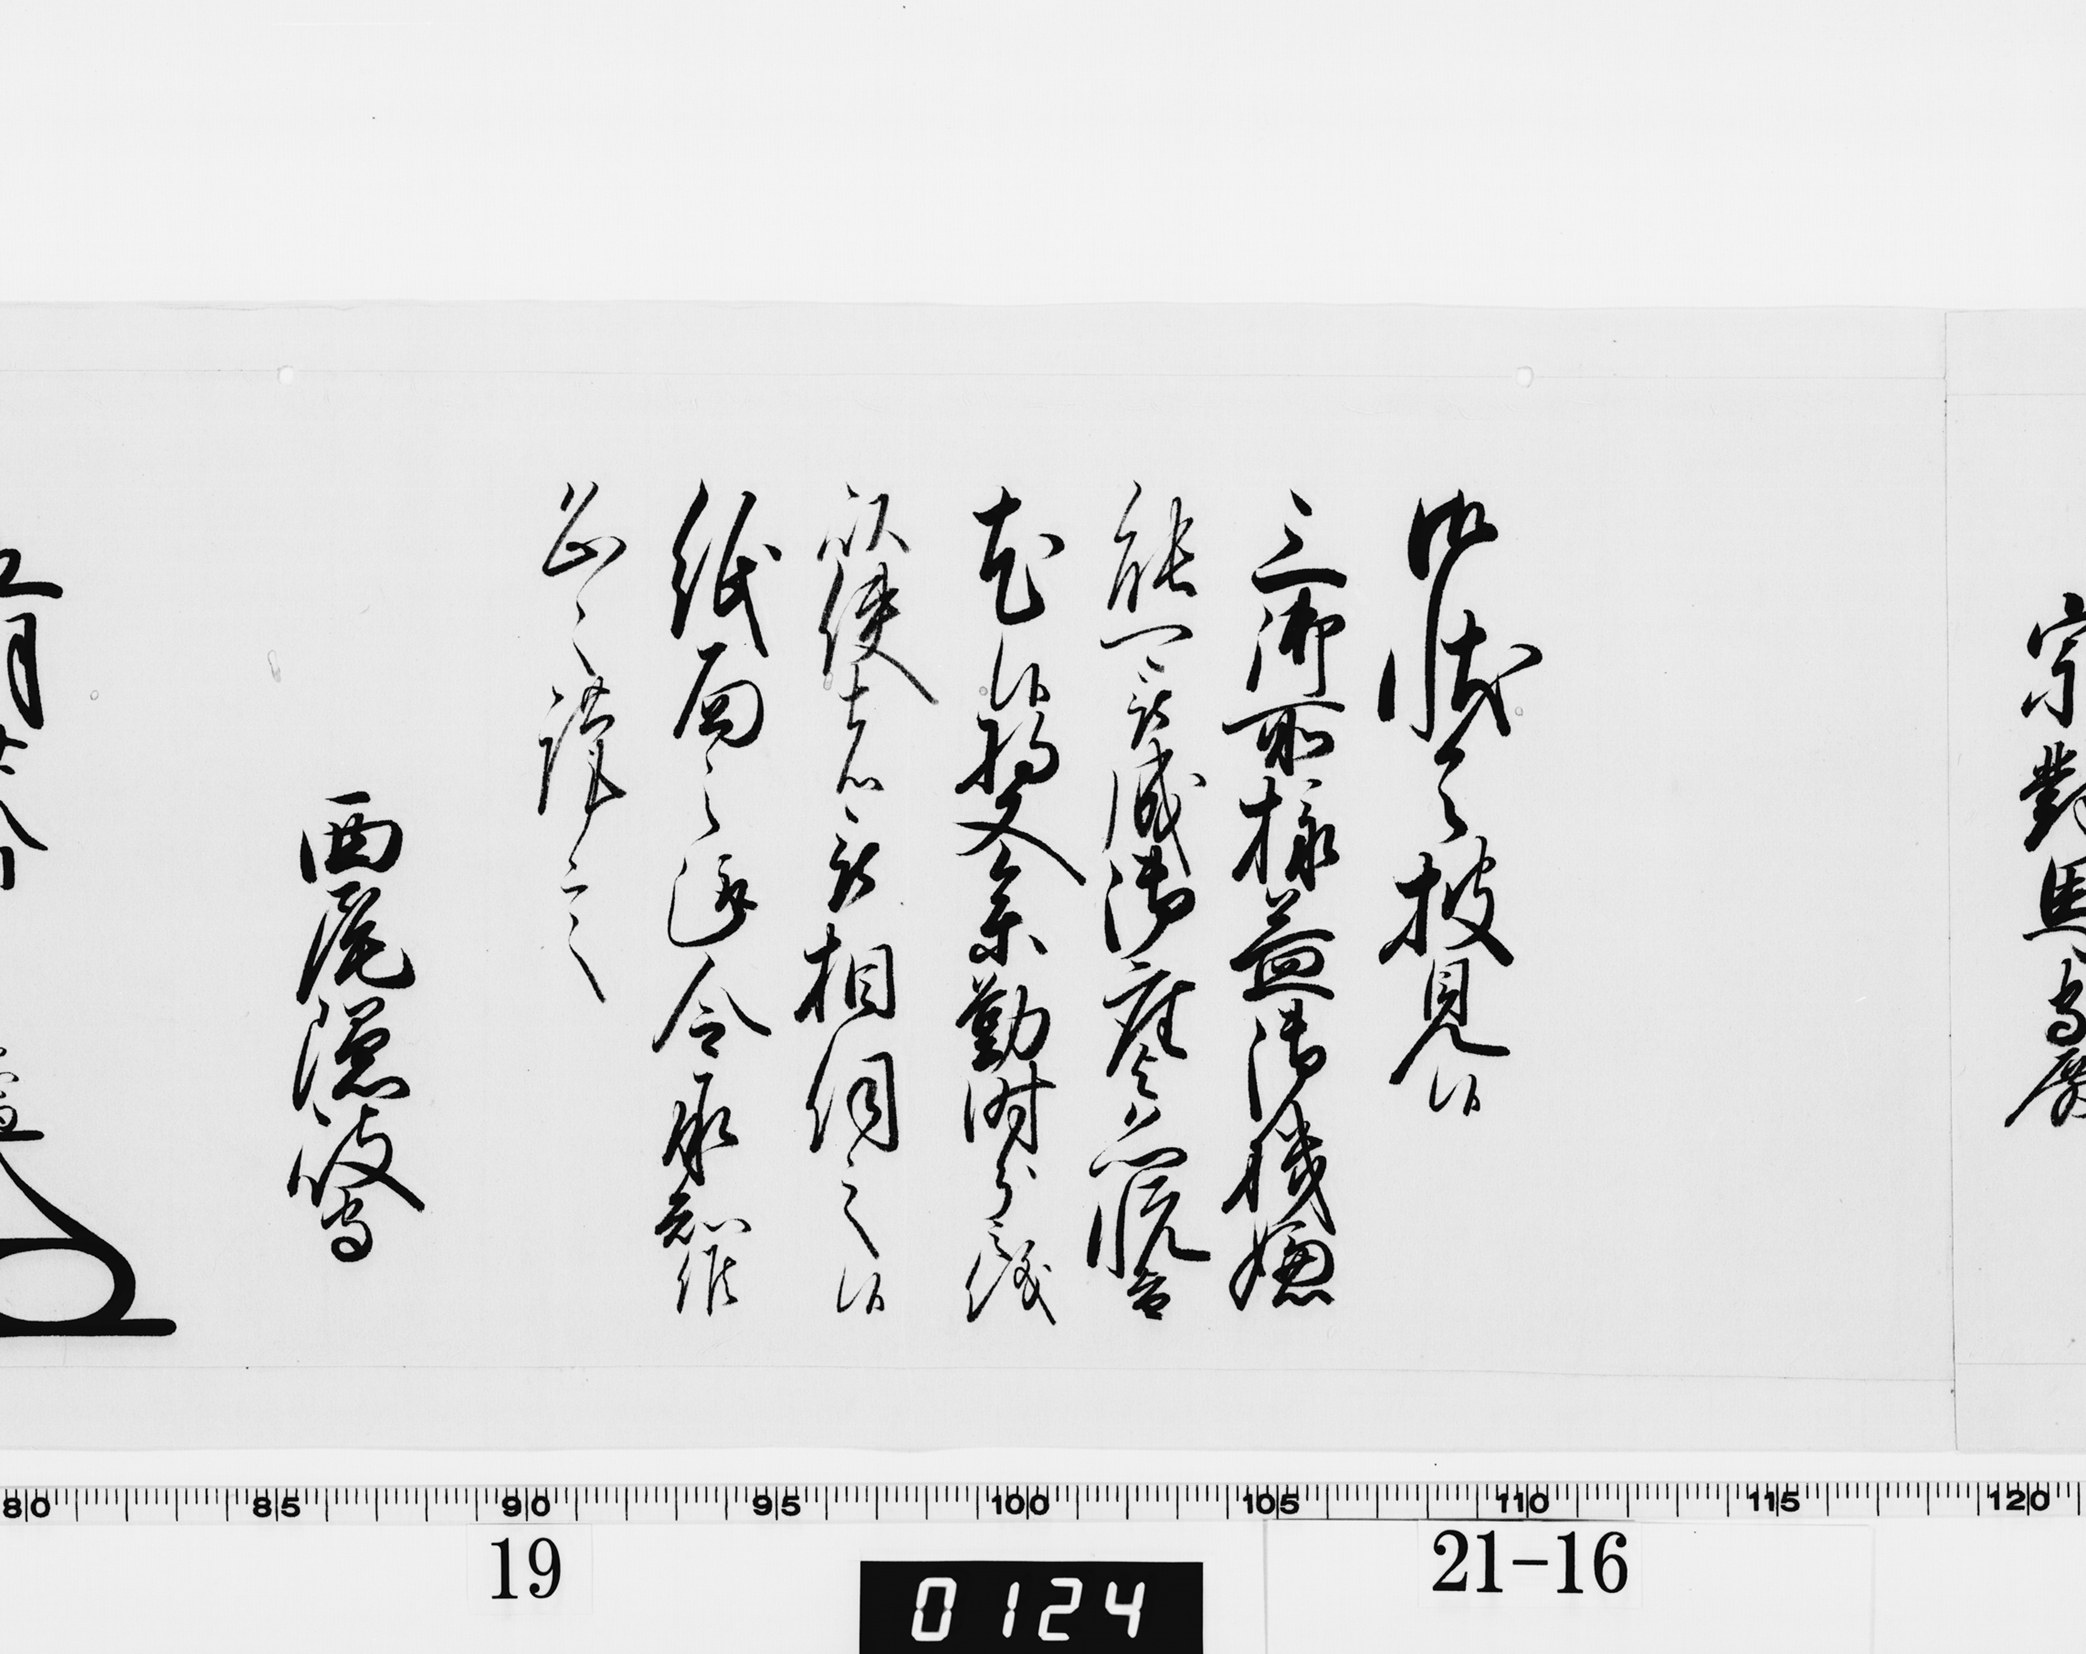 宗對馬守殿
御状令披見候
三御所様益御機嫌
能可被成御座与恐悦旨
尤候将又参勤時分之儀
以使者被相伺之候
紙面之通令承知候
恐々謹言
西尾隠岐守
五月廿八日
19
0124
21-16
80 85 90 95 100 105 110 115 120